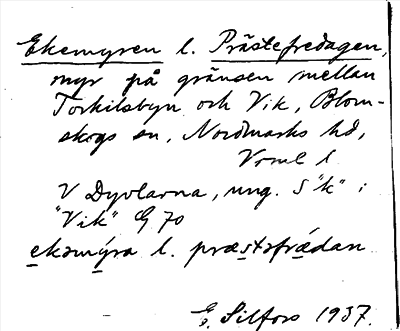 Ekemyren l. Prästefredagen,
myr på gränsen mellan
Torkilsbyn och Vik, Blom-
skogs sn, Nordmarks hd,
Vrml l
V Dyvlarna, ung. S "k" i
"Vik" G 70
ekəmýra l. præstəfrædan
G. Silfors 1937.